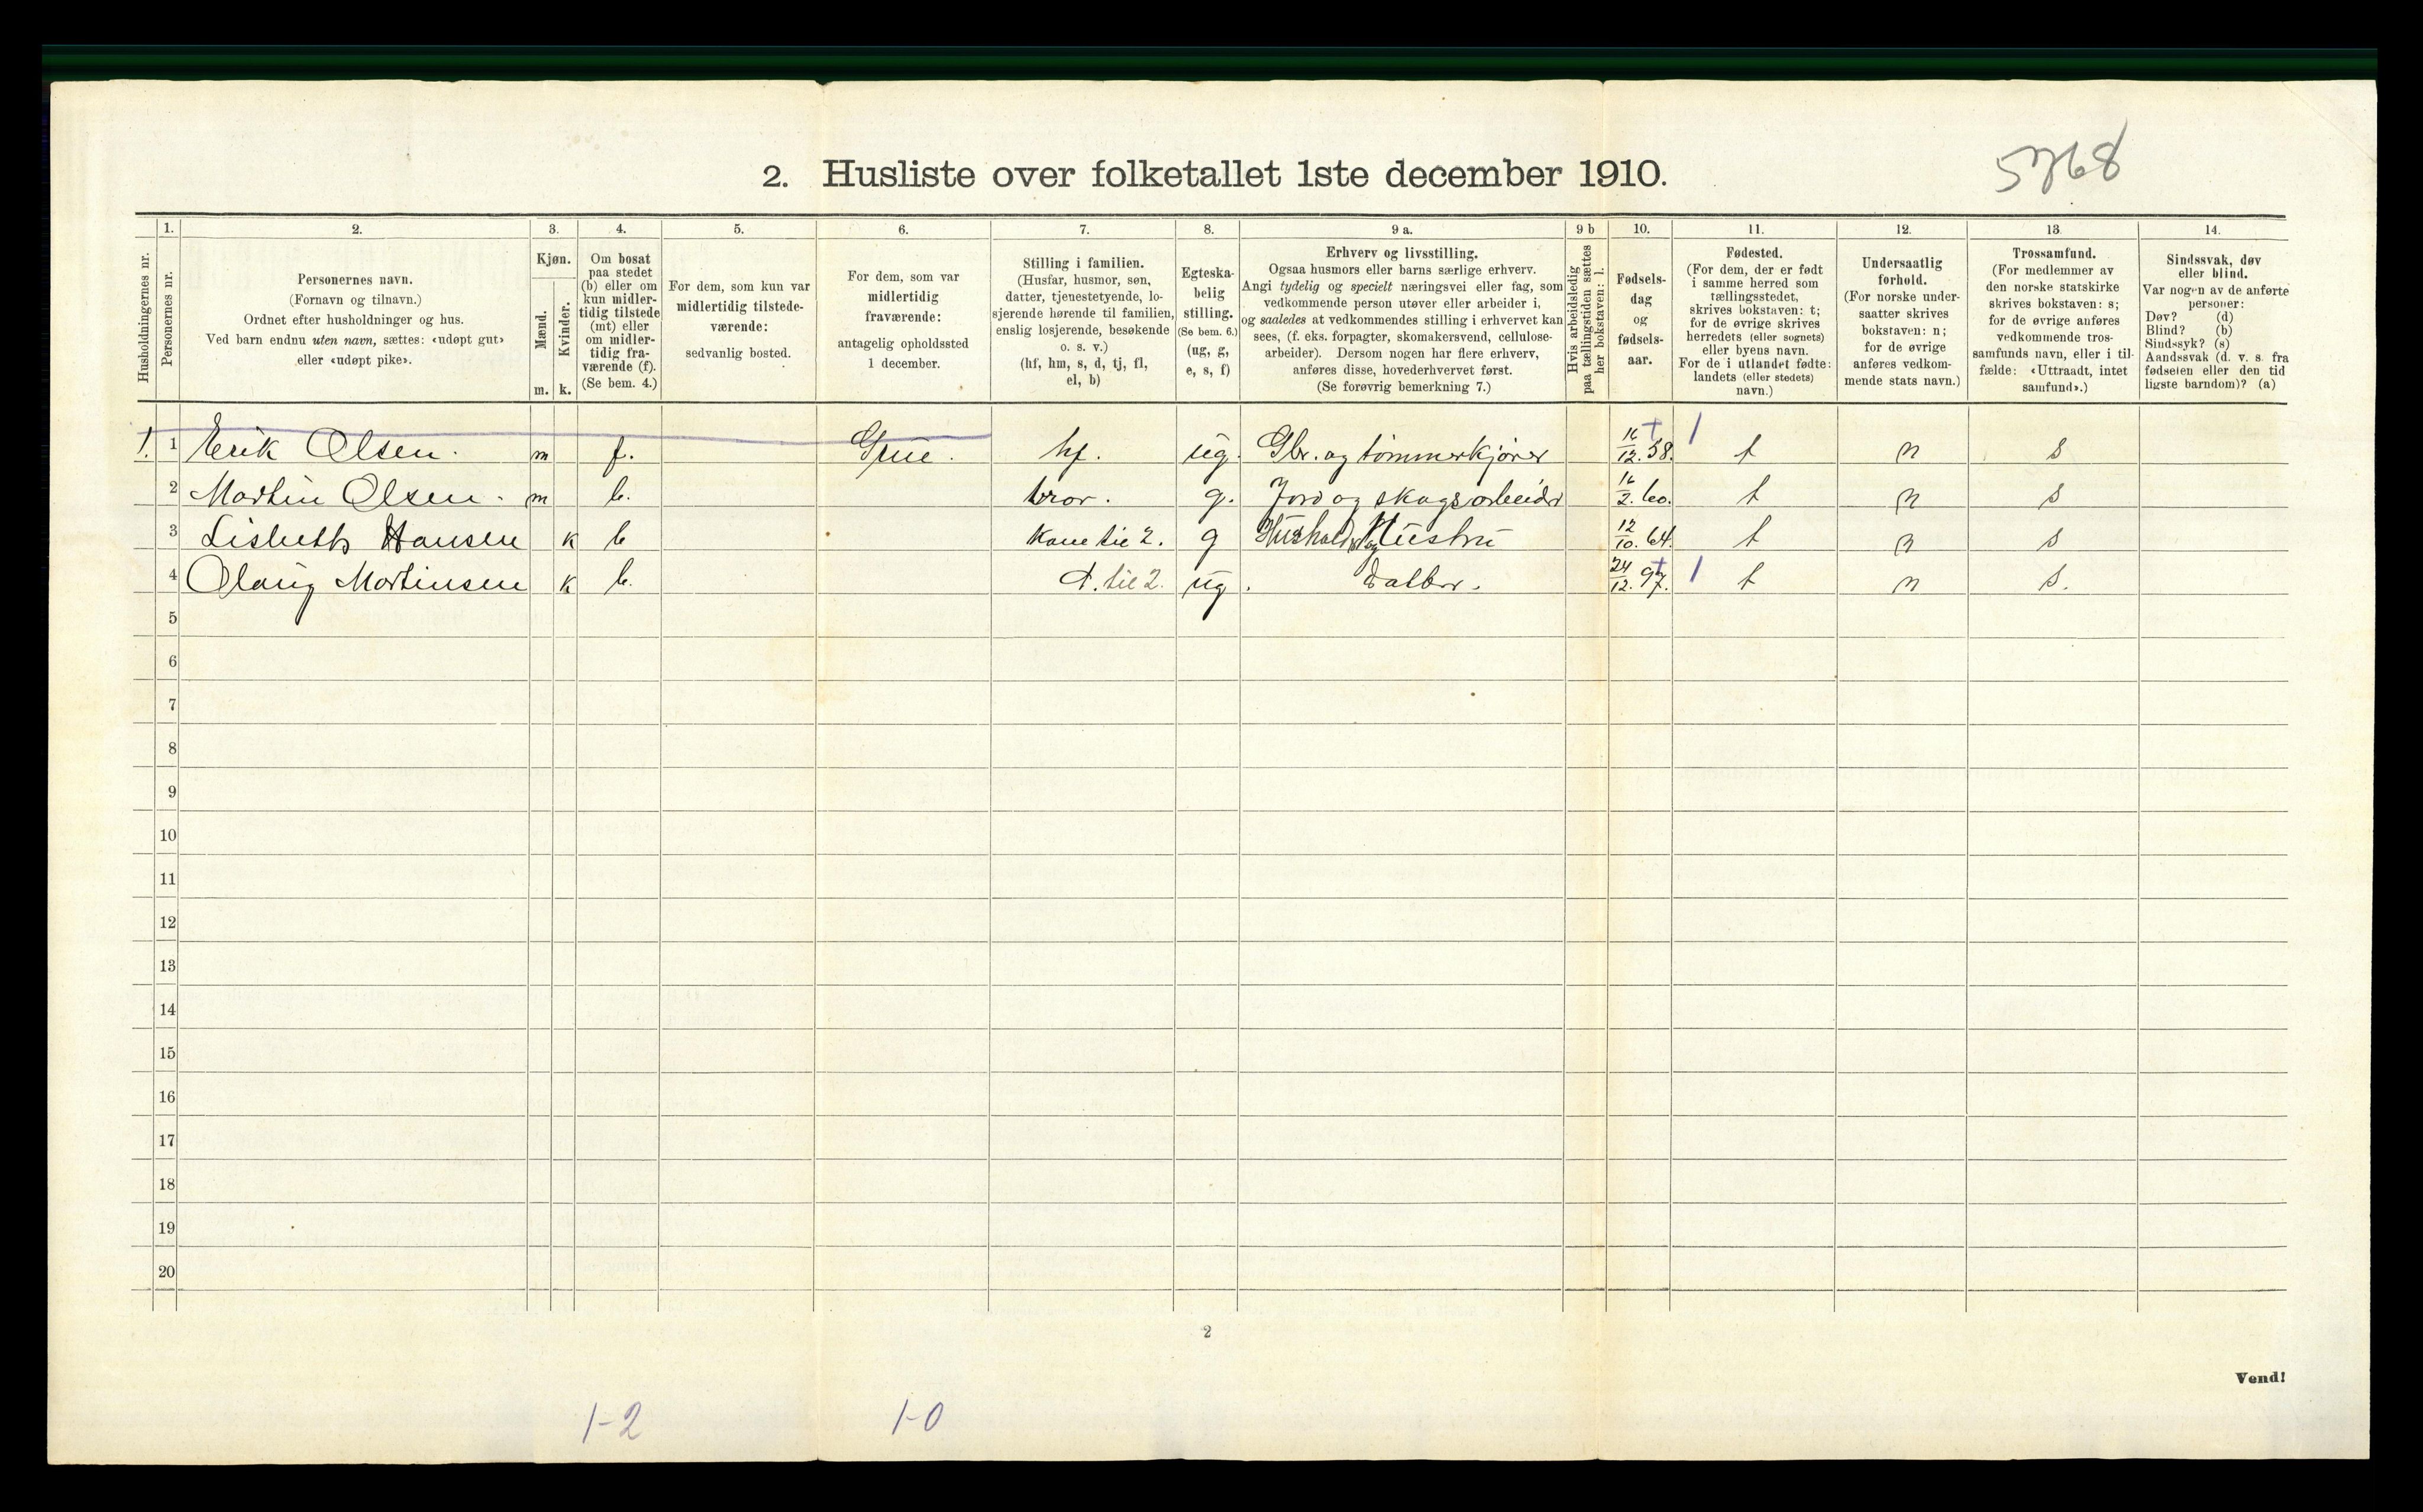 5768
2. Husliste over folketallet 1ste december 1910.
Husholdningernes nr.
1.
Personernes nr.
2.
Personernes navn.
(Fornavn og tilnavn.)
Ordnet efter husholdninger og hus.
Ved barn endnu uten navn, sættes: «udøpt gut»
eller «udøpt pike».
3.
Kjøn.
Mænd.
Kvinder.
m. k.
4.
Om bosat
paa stedet
(b) eller om
kun midler-
tidig tilstede
(mt) eller
om midler-
tidig fra-
værende (f).
(Se bem. 4.)
5.
For dem, som kun var
midlertidig tilstede-
værende:
sedvanlig bosted.
6.
For dem, som var
midlertidig
fraværende:
antagelig opholdssted
1 december.
7.
Stilling i familien.
(Husfar, husmor, søn,
datter, tjenestetyende, lo-
sjerende hørende til familien,
enslig losjerende, besøkende
o. s. v.)
(hf, hm, s, d, tj, fl,
el, b)
8.
Egteska-
belig
stilling.
(Se bem. 6.)
(ug, g,
e, s, f)
9 a.
Erhverv og livsstilling.
Ogsaa husmors eller barns særlige erhverv.
Angi tydelig og specielt næringsvei eller fag, som
vedkommende person utøver eller arbeider i,
og saaledes at vedkommendes stilling i erhvervet kan
sees, (f. eks. forpagter, skomakersvend, cellulose-
arbeider). Dersom nogen har flere erhverv,
anføres disse, hovederhvervet først.
(Se forøvrig bemerkning 7.)
9 b
Hvis arbeidsledig
paa tællingstiden sættes
her bokstaven: l.
10.
Fødsels-
dag
og
fødsels-
aar.
11.
Fødested.
(For dem, der er født
i samme herred som
tællingsstedet,
skrives bokstaven: t;
for de øvrige skrives
herredets (eller sognets)
eller byens navn.
For de i utlandet fødte:
landets (eller stedets)
navn.)
12.
Undersaatlig
forhold.
(For norske under-
saatter skrives
bokstaven: n;
for de øvrige
anføres vedkom-
mende stats navn.)
13.
Trossamfund.
(For medlemmer av
den norske statskirke
skrives bokstaven: s;
for de øvrige anføres
vedkommende tros-
samfunds navn, eller i til-
fælde: «Uttraadt, intet
samfund».)
14.
Sindssvak, døv
eller blind.
Var nogen av de anførte
personer:
Døv? (d)
Blind? (b)
Sindssyk? (s)
Aandssvak (d. v. s. fra
fødselen eller den tid
ligste barndom)? (a)
1. 1 Erik Olsen. m f. Grue. hf. ug. Gbr. og tømmerkjører 16/12. 58. t n s
2 Martin Olsen. m b. bror. g. Jord og skogsarbeider 16/2. 60. t n s
3 Lisbeth Hansen k b kone til 2. g Hushold og Hustru 12/10. 64. t n s
4 Olaug Martinsen k b. d. til 2. ug. datter. 24/12. 97. t n s.
5
6
7
8
9
10
11
12
13
14
15
16
17
18
19
20
2
Vend!
1-2 1-0